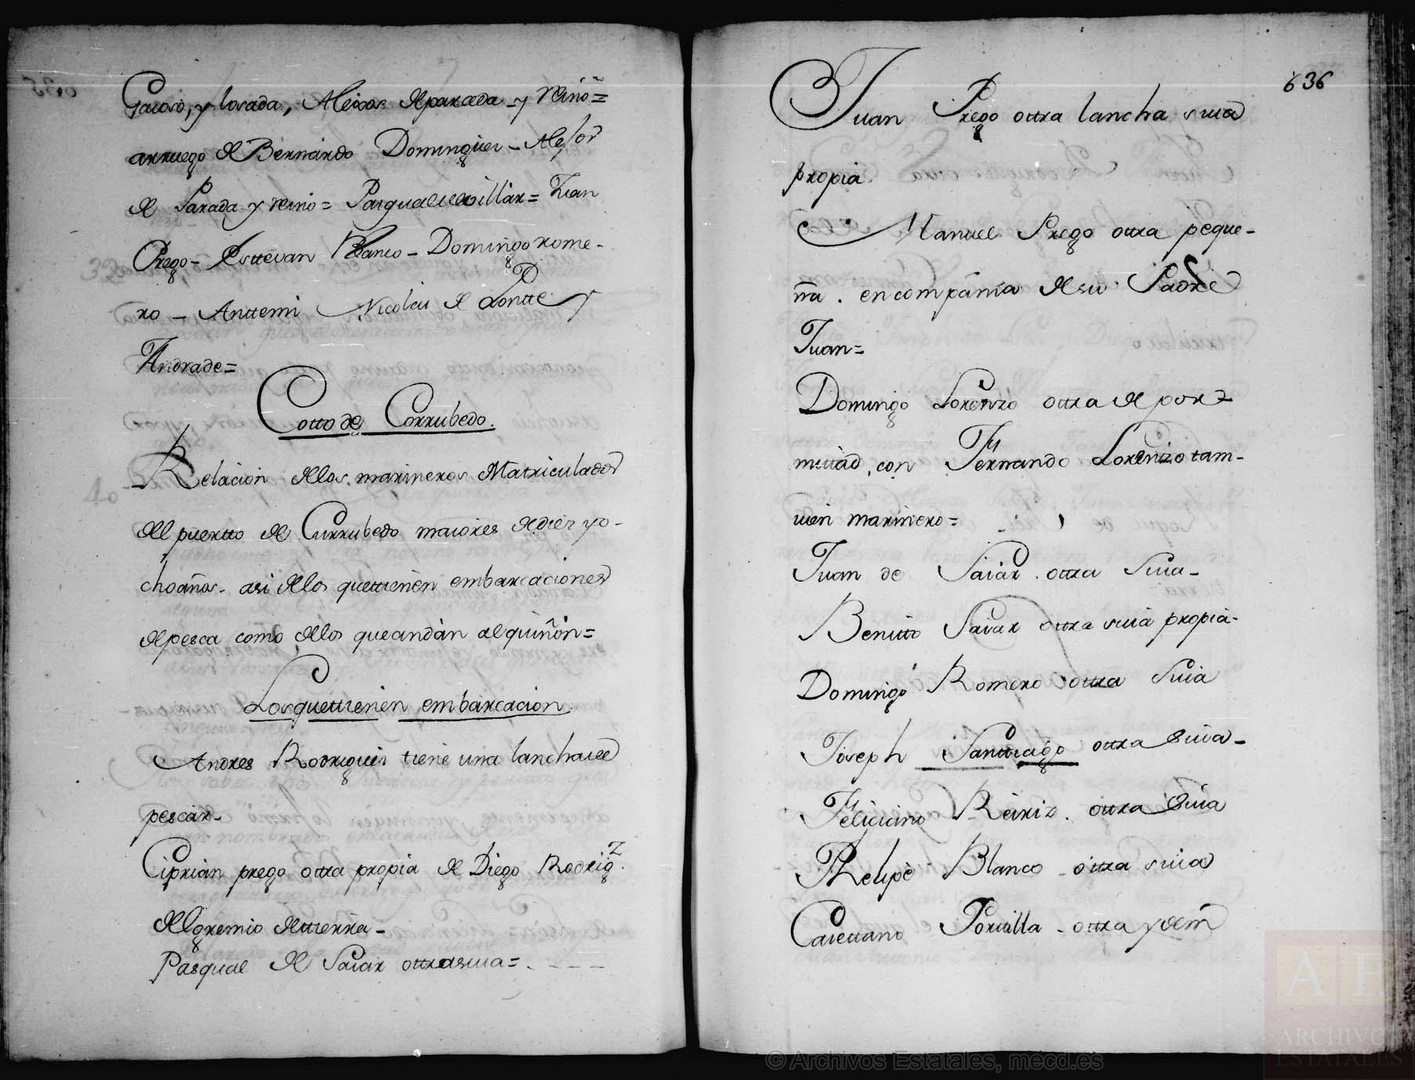 Gaioso, y losada, Alexos de parada y reino=
arruego de Bernardo Dominguez – Alesor
de Parada y reino= Pasqual de villar= Juan
Prego – Esttevan Blanco – Domingo rome-
ro – Anttemi Nicolas de Pontte y
Andrade=
Cotto de Corrubedo.
Relacion de los marineros Matriculados
del puertto de Currubedo maiores de diez yo-
cho años. asi de los quettienen embarcaciones
de pesca como de los que andan al quiñon=
Los quettienen embarcacion.
Andres Rodriguez tiene una lancha de
pescar–
Ciprian prego ottra propia de Diego Rodrig.z
del Gremio de ttierra–
Pasqual de Saiar ottra suia=
636
Juan Prego ottra lancha suia
propia
Manuel Prego ottra peque-
ña. en compañia de su Padre
Juan=
Domingo Lorenzo ottra de por
mittad, con Fernando Lorenzo tam-
vien marinero=
Juan de Saiar. ottra Suia–
Benitto Saiar ottra suia propia–
Domingo Romero ottra Suia
Joseph Santtiago ottra Suia–
Feliciano Reiriz. ottra Suia
Phelipe Blanco ottra suia
Caiettano Portilla – ottra ydem
© Archivos Estatales, mecd.es
AE
ARCHIVOS
ESTATALES